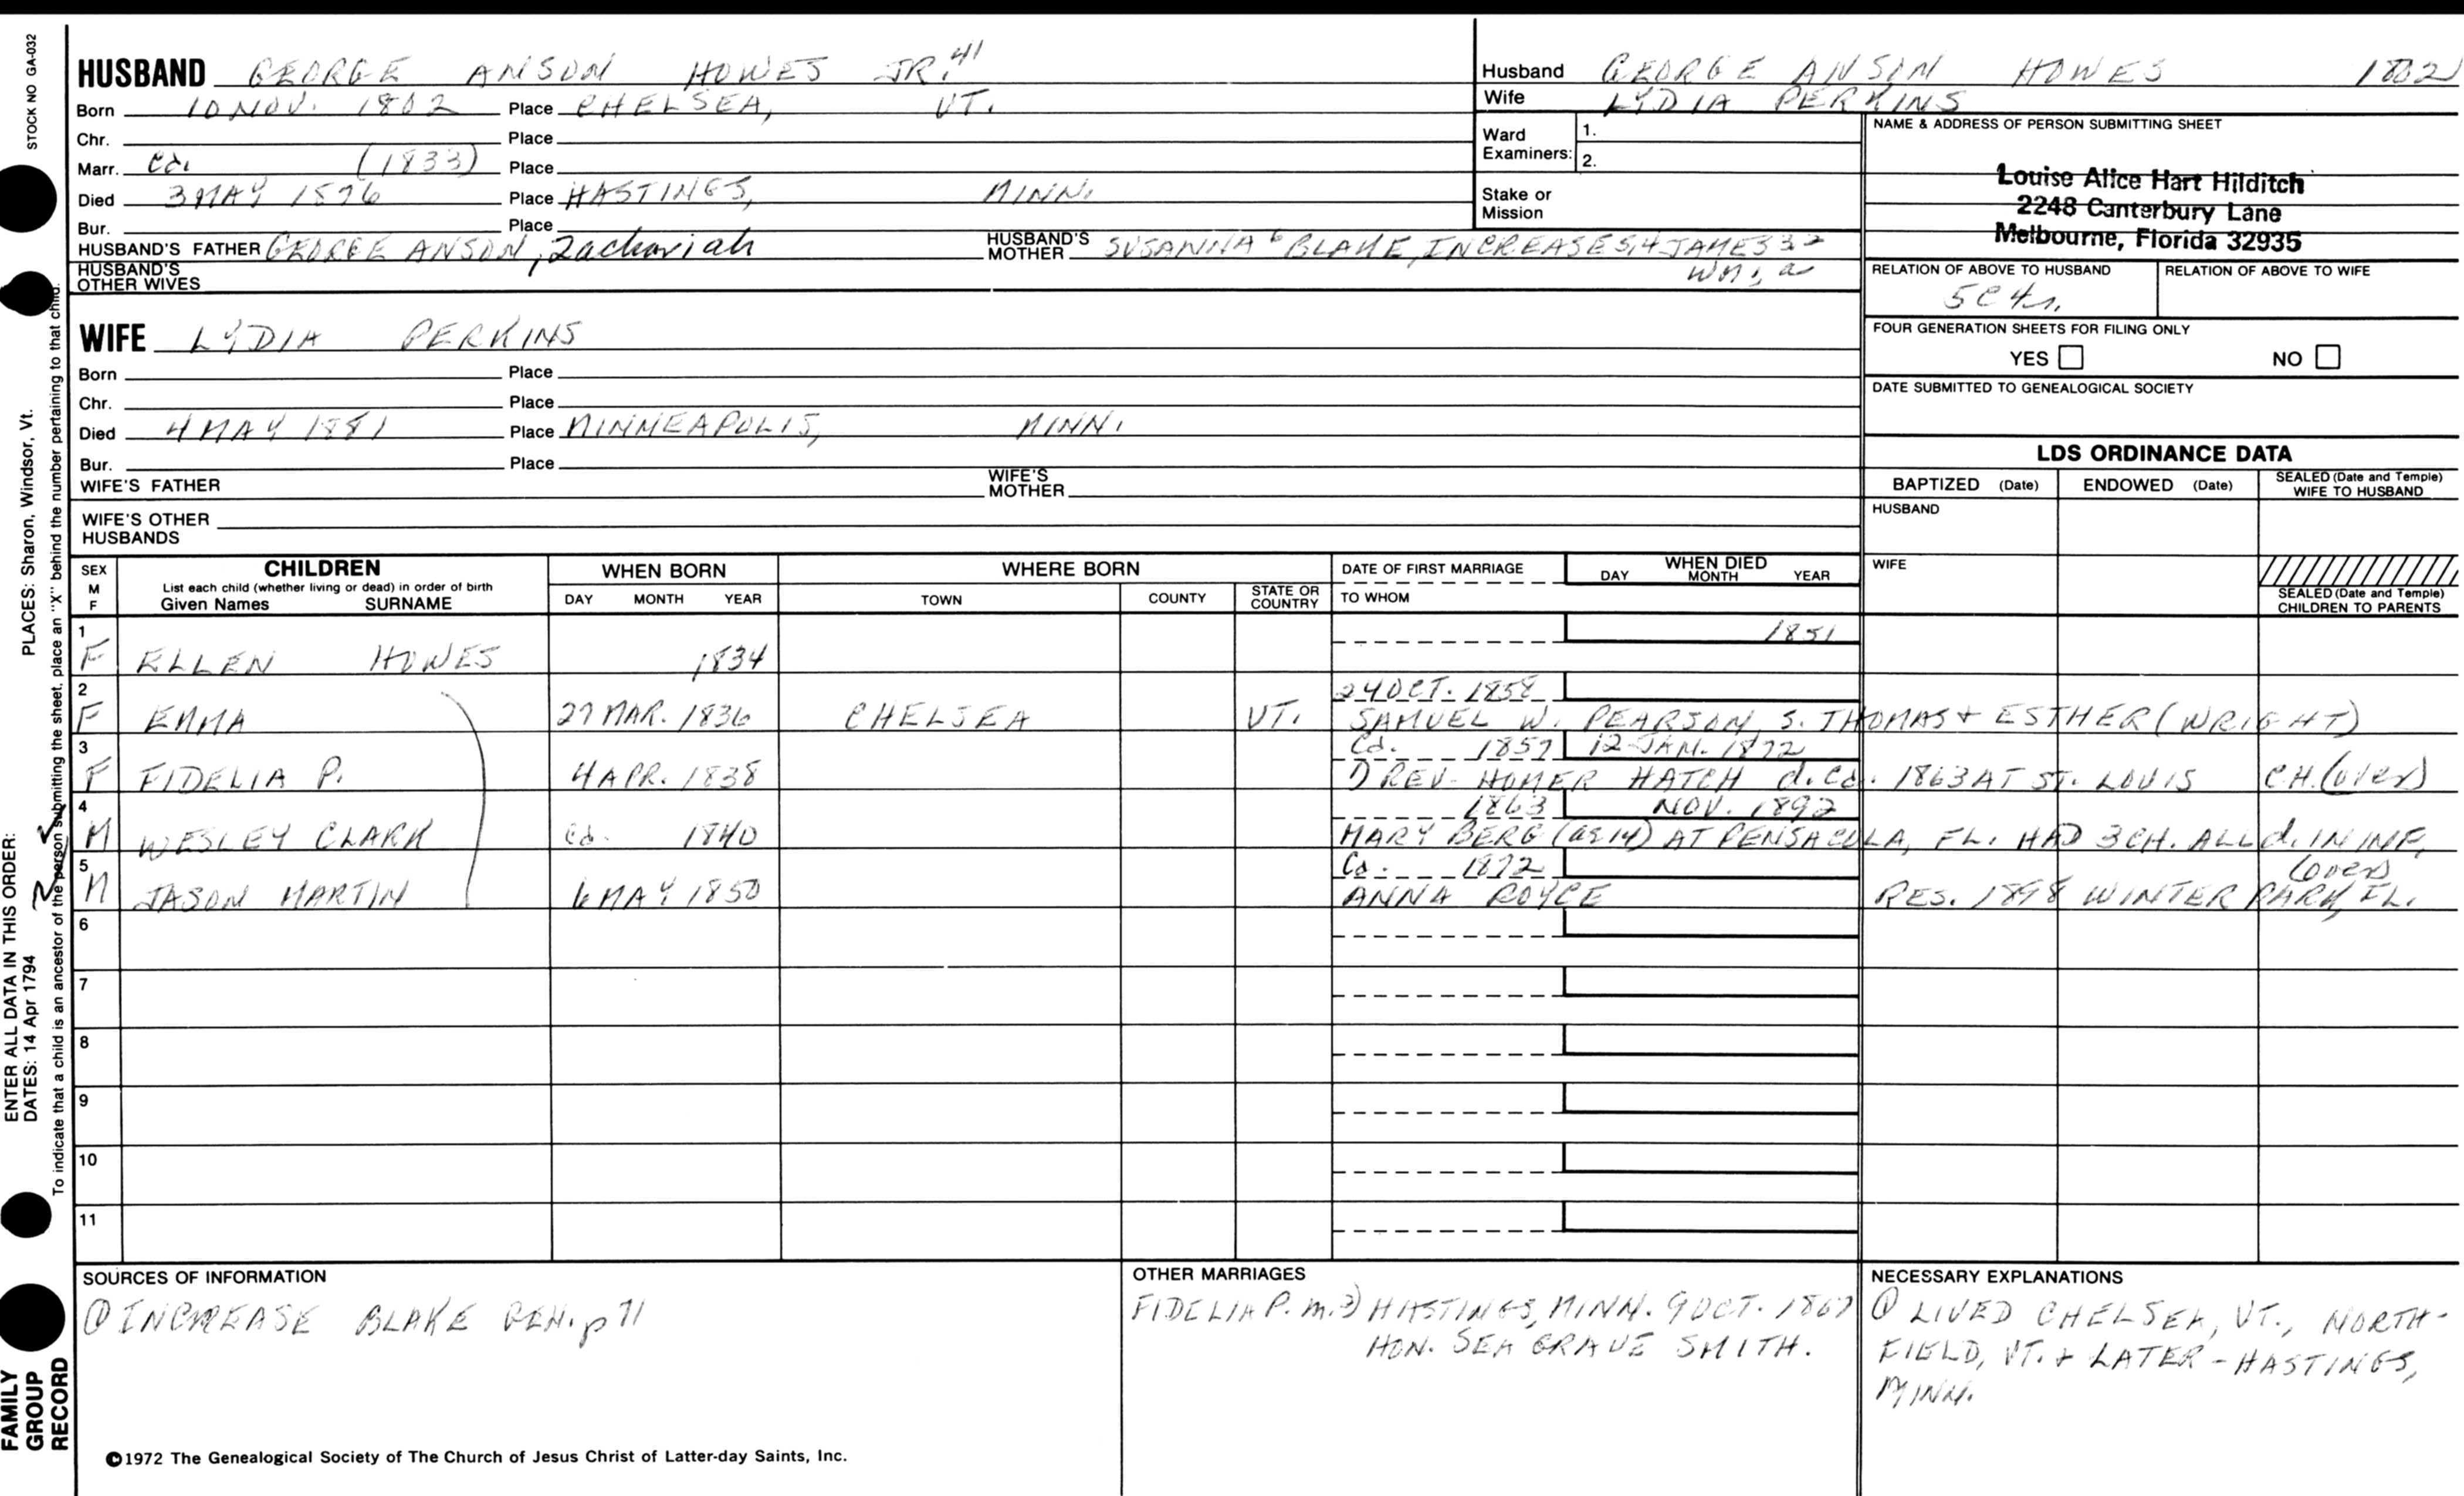 STOCK NO GA-032
HUSBAND GEORGE ANSON HOWES JR.
Born 10 NOV. 1802 Place CHELSEA, VT.
Chr. Place
Marr. Ca. (1833) Place
Died 3 MAY 1876 Place HASTINGS, MINN.
Bur. Place
HUSBAND'S FATHER GEORGE ANSON, Zachariah HUSBAND'S MOTHER SUSANNA 6 BLAKE, INCREASE 5,4 JAMES 3 2
WM 1
HUSBAND'S OTHER WIVES
WIFE LYDIA PERKINS
Born Place
Chr. Place
Died 4 MAY 1881 Place MINNEAPOLIS, MINN.
Bur. Place
WIFE'S FATHER WIFE'S MOTHER
WIFE'S OTHER HUSBANDS
Husband GEORGE ANSON HOWES 1802
Wife LYDIA PERKINS
Ward Examiners: 1.
2.
Stake or Mission
NAME & ADDRESS OF PERSON SUBMITTING SHEET
Louise Alice Hart Hilditch
2248 Canterbury Lane
Melbourne, Florida 32935
RELATION OF ABOVE TO HUSBAND RELATION OF ABOVE TO WIFE
5C4r.
FOUR GENERATION SHEETS FOR FILING ONLY
YES NO
DATE SUBMITTED TO GENEALOGICAL SOCIETY
LDS ORDINANCE DATA
BAPTIZED (Date) ENDOWED (Date) SEALED (Date and Temple) WIFE TO HUSBAND
HUSBAND
WIFE
SEALED (Date and Temple) CHILDREN TO PARENTS
SEX M F CHILDREN WHEN BORN WHERE BORN DATE OF FIRST MARRIAGE WHEN DIED
List each child (whether living or dead) in order of birth
Given Names SURNAME DAY MONTH YEAR TOWN COUNTY STATE OR COUNTRY TO WHOM DAY MONTH YEAR
1 1851
F ELLEN HOWES 1834
2 24 OCT. 1858
F EMMA 27 MAR. 1836 CHELSEA VT. SAMUEL W. PEARSON, S. THOMAS & ESTHER (WRIGHT)
3 Ca. 1857 12 JAN. 1872
F FIDELIA P. 4 APR. 1838 1) REV. HOMER HATCH d. Ca. 1863 AT ST. LOUIS CH. (over)
4 1863 NOV. 1892
M WESLEY CLARK Ca. 1840 MARY BERG (as 14) AT PENSACOLA, FL. HAD 3 CH. ALL d. IN INF.
(over)
5 Ca. 1872
M JASON MARTIN 6 MAY 1850 ANNA ROYCE RES. 1898 WINTER PARK, FL.
6
7
8
9
10
11
SOURCES OF INFORMATION
① INCREASE BLAKE GEN. p 71
OTHER MARRIAGES
FIDELIA P. m. 2) HASTINGS, MINN. 9 OCT. 1867
HON. SEAGRAVE SMITH.
NECESSARY EXPLANATIONS
① LIVED CHELSEA, VT., NORTH-
FIELD, VT. & LATER - HASTINGS,
MINN.
©1972 The Genealogical Society of The Church of Jesus Christ of Latter-day Saints, Inc.
FAMILY GROUP RECORD
ENTER ALL DATA IN THIS ORDER:
DATES: 14 Apr 1794 PLACES: Sharon, Windsor, Vt.
To indicate that a child is an ancestor of the person submitting the sheet, place an "X" behind the number pertaining to that child.